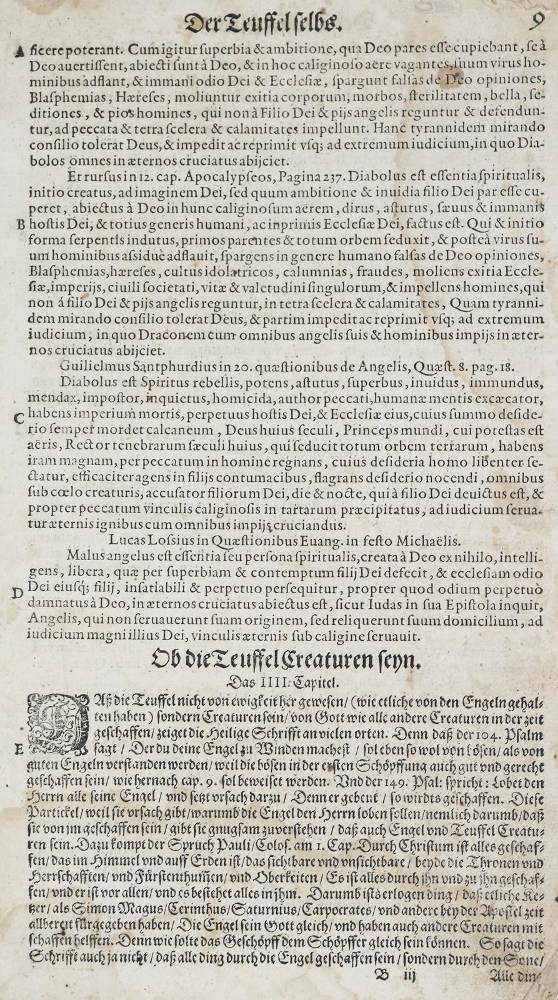 Der Teuffel selbs. 9
A ficere poterant. Cum igitur superbia & ambitione, qua Deo pares esse cupiebant, se à
Deo auertissent, abiecti sunt à Deo, & in hoc caliginoso aere vagantes, suum virus ho-
minibus adflant, & immani odio Dei & Ecclesiæ, spargunt falsas de Deo opiniones,
Blasphemias, Hæreses, moliuntur exitia corporum, morbos, sterilitatem, bella, se-
ditiones, & pios homines, qui non à Filio Dei & pijs angelis reguntur & defendun-
tur, ad peccata & tetra scelera & calamitates impellunt. Hanc tyrannidem mirando
consilio tolerat Deus, & impedit ac reprimit vsq; ad extremum iudicium, in quo Dia-
bolos omnes in æternos cruciatus abijciet.
Et rursus in 12. cap. Apocalypseos, Pagina 237. Diabolus est essentia spiritualis,
initio creatus, ad imaginem Dei, sed quum ambitione & inuidia filio Dei par esse cu-
peret, abiectus à Deo in hunc caliginosum aerem, dirus, astutus, sæuus & immanis
B hostis Dei, & totius generis humani, ac inprimis Ecclesiæ Dei, factus est. Qui & initio
forma serpentis indutus, primos parentes & totum orbem seduxit, & posteà virus su-
um hominibus assiduè adflauit, spargens in genere humano falsas de Deo opiniones,
Blasphemias, hæreses, cultus idolatricos, calumnias, fraudes, moliens exitia Eccle-
siæ, imperijs, ciuili societati, vitæ & valetudini singulorum, & impellens homines, qui
non á filio Dei & pijs angelis reguntur, in tetra scelera & calamitates, Quam tyranni-
dem mirando consilio tolerat Deus, & partim impedit ac reprimit vsq; ad extremum
iudicium, in quo Draconem cum omnibus angelis suis & hominibus impijs in æter-
nos cruciatus abijciet.
Guilielmus Santphurdius in 20. quæstionibus de Angelis, Quæst. 8. pag. 18.
Diabolus est Spiritus rebellis, potens, astutus, superbus, inuidus, immundus,
mendax, impostor, inquietus, homicida, author peccati, humanæ mentis excæcator,
C habens imperium mortis, perpetuus hostis Dei, & Ecclesiæ eius, cuius summo deside-
rio semper mordet calcaneum, Deus huius seculi, Princeps mundi, cui potestas est
aëris, Rector tenebrarum sæculi huius, qui seducit totum orbem terrarum, habens
iram magnam, per peccatum in homine regnans, cuius desideria homo libenter se-
ctatur, efficaciter agens in filijs contumacibus, flagrans desiderio nocendi, omnibus
sub cœlo creaturis, accusator filiorum Dei, die & nocte, qui à filio Dei deuictus est, &
propter peccatum vinculis caliginosis in tartarum præcipitatus, ad iudicium serua-
tur æternis ignibus cum omnibus impijs cruciandus.
Lucas Lossius in Quæstionibus Euang. in festo Michaëlis.
Malus angelus est essentia seu persona spiritualis, creata à Deo ex nihilo, intelli-
gens, libera, quæ per superbiam & contemptum filij Dei defecit, & ecclesiam odio
D Dei eiusq; filij, insatiabili & perpetuo persequitur, propter quod odium perpetuò
damnatus à Deo, in æternos cruciatus abiectus est, sicut Iudas in sua Epistola inquit,
Angelis, qui non seruauerunt suam originem, sed reliquerunt suum domicilium, ad
iudicium magni illius Dei, vinculis æternis sub caligine seruauit.
Ob die Teuffel Creaturen seyn.
Das IIII. Capitel.
DAß die Teuffel nicht von ewigkeit her gewesen/ (wie etliche von den Engeln gehal-
ten haben) sondern Creaturen sein/ von Gott wie alle andere Creaturen in der zeit
geschaffen/ zeiget die Heilige Schrifft an vielen orten. Denn daß der 104. Psalm
E sagt/ Der du deine Engel zu Winden machest/ sol eben so wol von bösen/ als von
guten Engeln verstanden werden/ weil die bösen in der ersten Schöpffung auch gut vnd gerecht
geschaffen sein/ wie hernach cap. 9. sol beweiset werden. Vnd der 149. Psal: spricht: Lobet den
Herrn alle seine Engel/ vnd setzt vrsach darzu/ Denn er gebeut/ so wirdts geschaffen. Diese
Partickel/ weil sie vrsach gibt/ warumb die Engel den Herrn loben sollen/ nemlich darumb/ daß
sie von jm geschaffen sein/ gibt sie gnugsam zuverstehen/ daß auch Engel vnd Teuffel Creatu-
ren sein. Dazu kompt der Spruch Pauli/ Colos. am 1. Cap. Durch Christum ist alles geschaf-
fen/ das im Himmel vnd auff Erden ist/ das sichtbare vnd vnsichtbare/ beyde die Thronen vnd
Herrschafften/ vnd Fürstenthumen/ vnd Oberkeiten/ Es ist alles durch jhn vnd zu jhn geschaf-
fen/ vnd er ist vor allen/ vnd es bestehet alles in jhm. Darumb ists erlogen ding/ daß etliche Ke-
tzer/ als Simon Magus/ Cerinthus/ Saturnius/ Carpocrates/ vnd andere bey der Apostel zeit
allbereit fürgegeben haben/ Die Engel sein Gott gleich/ vnd haben auch andere Creaturen mit
schaffen helffen. Denn wie solte das Geschöpff dem Schöpffer gleich sein können. So sagt die
Schrifft auch ja nicht/ daß alle ding durch die Engel geschaffen sein/ sondern durch den Sone/
B iij Alle din-